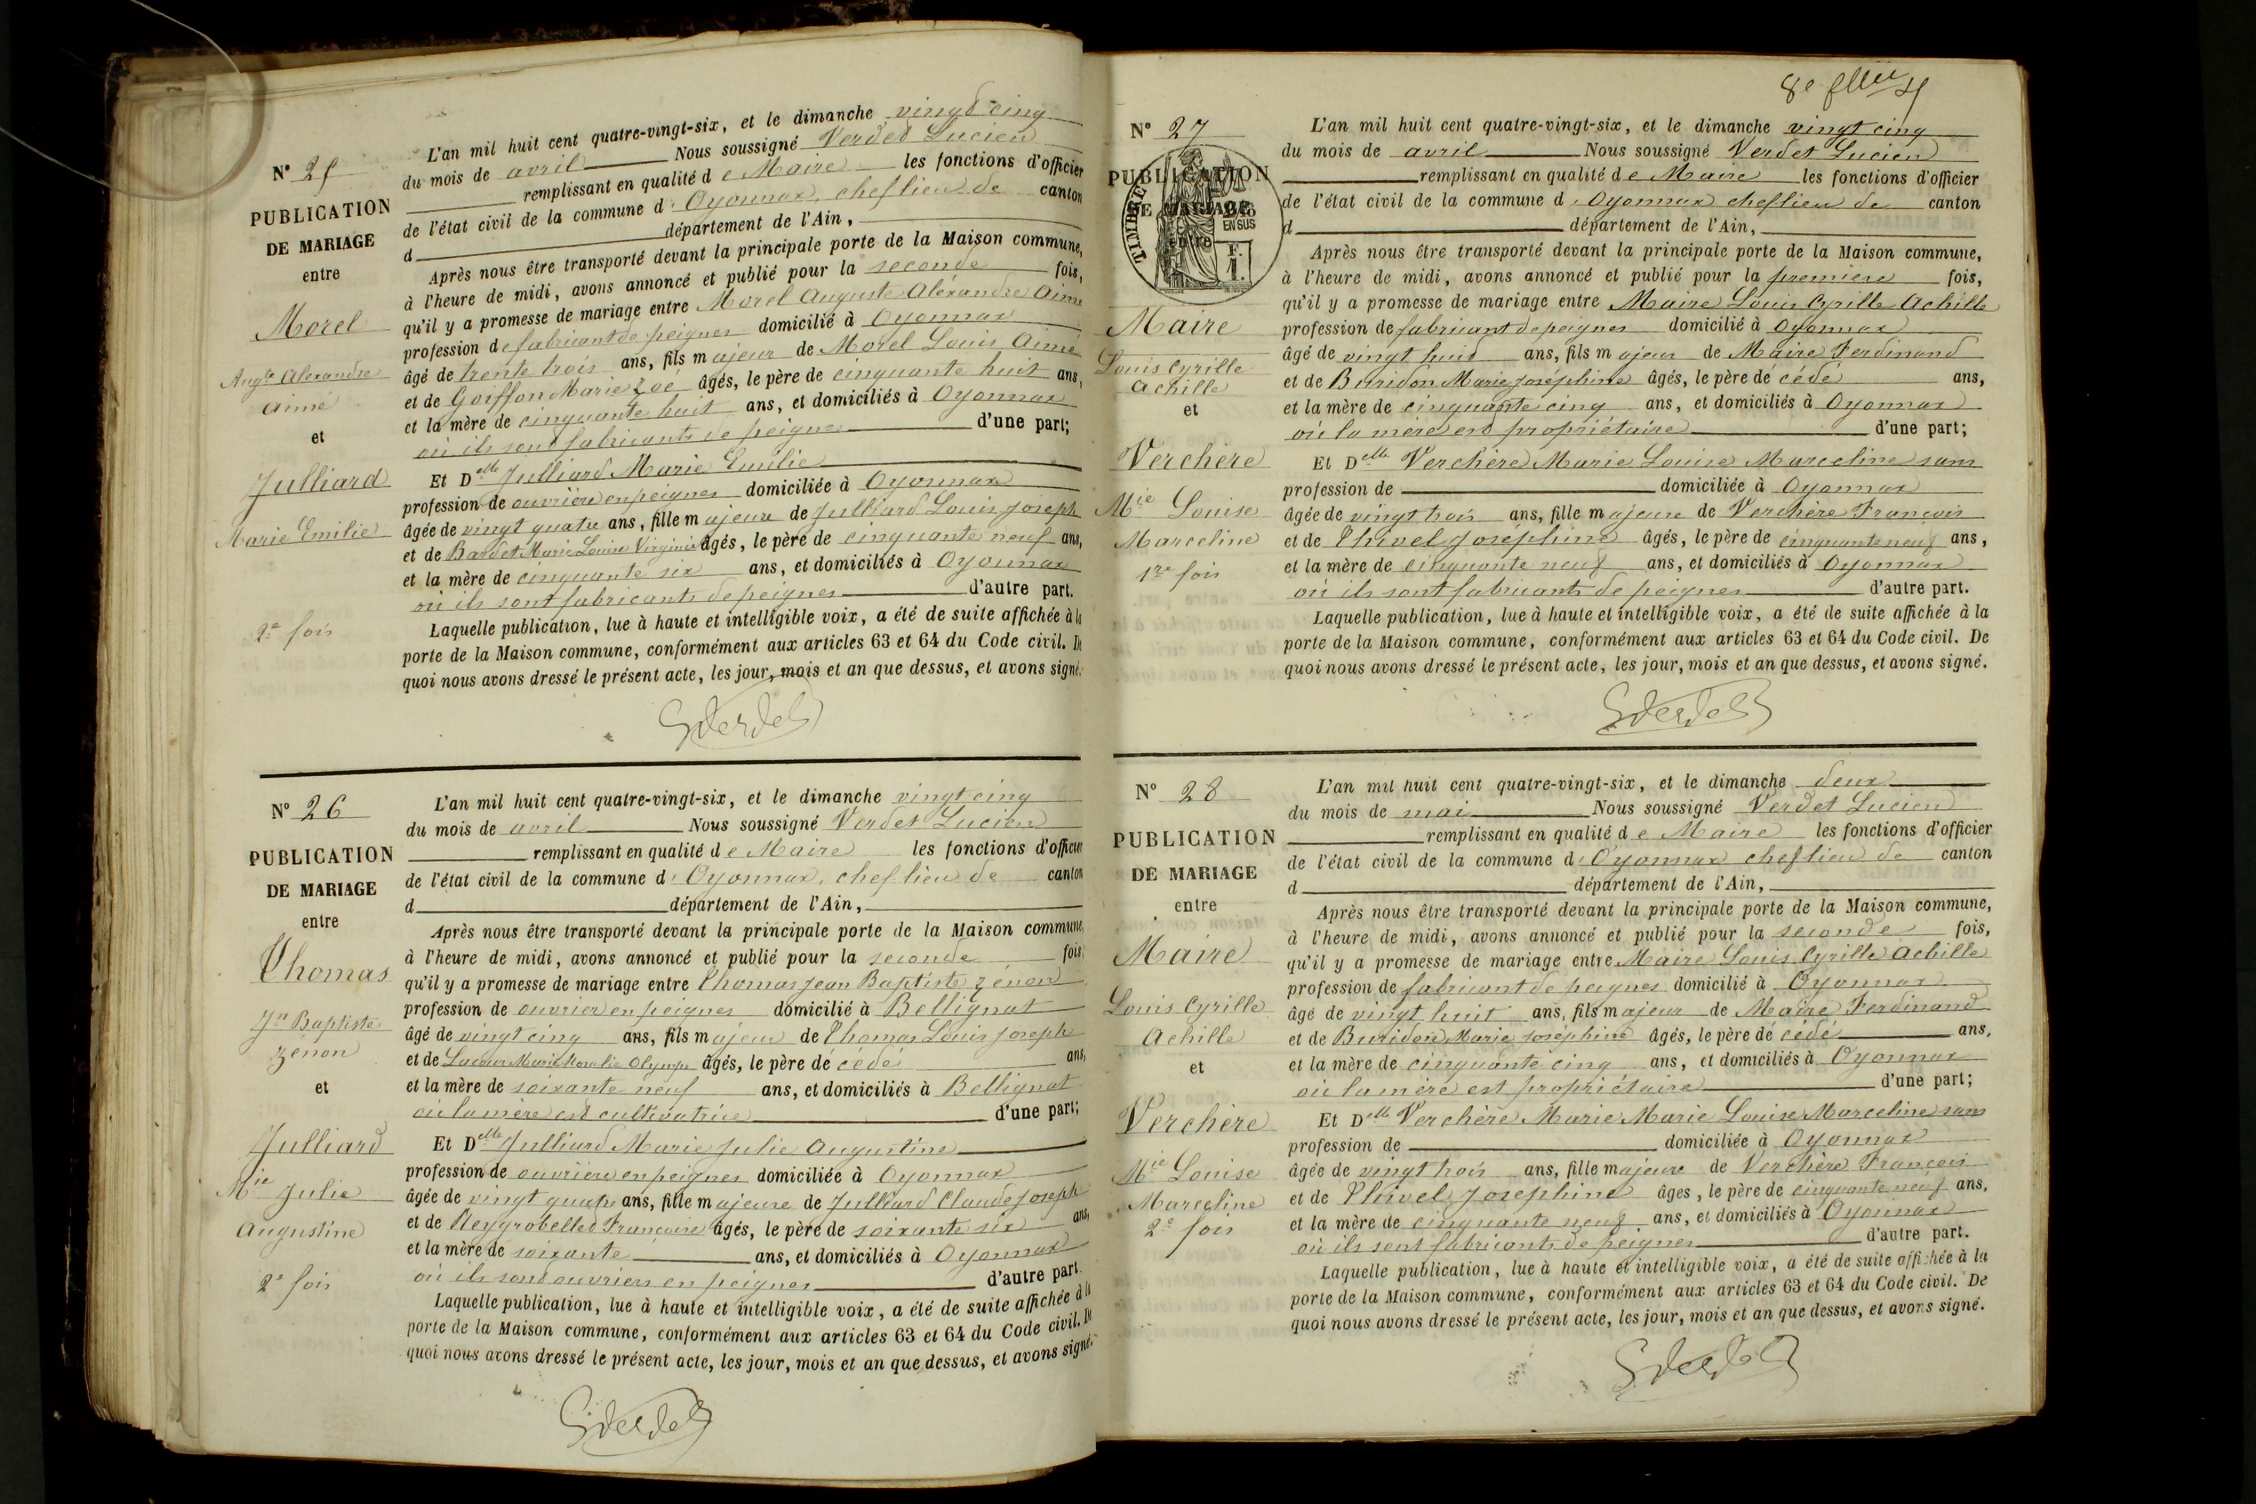 N° 25
PUBLICATION
DE MARIAGE
entre
Morel
Augte Alexandre
Aimé
et
Julliard
Marie Emilie
2e fois
L'an mil huit cent quatre-vingt-six, et le dimanche vingt cinq
du mois de avril Nous soussigné Verdet Lucien
remplissant en qualité de Maire les fonctions d'officier
de l'état civil de la commune d'Oyonnax, chef lieu de canton
d département de l'Ain,
Après nous être transporté devant la principale porte de la Maison commune,
à l'heure de midi, avons annoncé et publié pour la seconde fois,
qu'il y a promesse de mariage entre Morel Auguste Alexandre Aimé
profession de fabricant de peignes domicilié à Oyonnax
âgé de trente trois ans, fils majeur de Morel Louis Aimé
et de Goiffon Marie Zoé âgés, le père de cinquante huit ans,
et la mère de cinquante huit ans, et domiciliés à Oyonnax
où ils sont fabricants de peignes d'une part;
Et Delle Julliard Marie Emilie
profession de ouvrière en peignes domiciliée à Oyonnax
âgée de vingt quatre ans, fille majeure de Julliard Louis Joseph
et de Bardet Marie Louise Virginie âgés, le père de cinquante neuf ans,
et la mère de cinquante six ans, et domiciliés à Oyonnax
où ils sont fabricants de peignes d'autre part.
Laquelle publication, lue à haute et intelligible voix, a été de suite affichée à la
porte de la Maison commune, conformément aux articles 63 et 64 du Code civil. De
quoi nous avons dressé le présent acte, les jour, mois et an que dessus, et avons signé.
Verdet
N° 26
PUBLICATION
DE MARIAGE
entre
Thomas
Jn Baptiste
Zénon
et
Julliard
Mie Julie
Augustine
2e fois
L'an mil huit cent quatre-vingt-six, et le dimanche vingt cinq
du mois de avril Nous soussigné Verdet Lucien
remplissant en qualité de Maire les fonctions d'officier
de l'état civil de la commune d'Oyonnax, chef lieu de canton
d département de l'Ain,
Après nous être transporté devant la principale porte de la Maison commune,
à l'heure de midi, avons annoncé et publié pour la seconde fois,
qu'il y a promesse de mariage entre Thomas Jean Baptiste Zénon
profession de ouvrier en peignes domicilié à Bellignat
âgé de vingt cinq ans, fils majeur de Thomas Louis Joseph
et de Marie Olympe âgés, le père dé cédé ans,
et la mère de soixante neuf ans, et domiciliés à Bellignat
où la mère est cultivatrice d'une part;
Et Delle Julliard Marie Julie Augustine
profession de ouvrière en peignes domiciliée à Oyonnax
âgée de vingt quatre ans, fille majeure de Julliard Claude Joseph
et de Reygrobellet Françoise âgés, le père de soixante six ans,
et la mère de soixante ans, et domiciliés à Oyonnax
où ils sont ouvriers en peignes d'autre part.
Laquelle publication, lue à haute et intelligible voix, a été de suite affichée à la
porte de la Maison commune, conformément aux articles 63 et 64 du Code civil. De
quoi nous avons dressé le présent acte, les jour, mois et an que dessus, et avons signé.
Verdet
8e fllet
N° 27
PUBLICATION
DE MARIAGE
entre
TIMBRE
EN SUS
F.
1.
Maire
Louis Cyrille
Achille
et
Verchère
Mie Louise
Marceline
1re fois
L'an mil huit cent quatre-vingt-six, et le dimanche vingt cinq
du mois de avril Nous soussigné Verdet Lucien
remplissant en qualité de Maire les fonctions d'officier
de l'état civil de la commune d'Oyonnax chef lieu de canton
d département de l'Ain,
Après nous être transporté devant la principale porte de la Maison commune,
à l'heure de midi, avons annoncé et publié pour la première fois,
qu'il y a promesse de mariage entre Maire Louis Cyrille Achille
profession de fabricant de peignes domicilié à Oyonnax
âgé de vingt huit ans, fils majeur de Maire Ferdinand
et de Buridon Marie Joséphine âgés, le père dé cédé ans,
et la mère de cinquante cinq ans, et domiciliés à Oyonnax
où la mère est propriétaire d'une part;
Et Delle Verchère Marie Louise Marceline sans
profession de domiciliée à Oyonnax
âgée de vingt trois ans, fille majeure de Verchère François
et de Thivel Joséphine âgés, le père de cinquante neuf ans,
et la mère de cinquante neuf ans, et domiciliés à Oyonnax
où ils sont fabricants de peignes d'autre part.
Laquelle publication, lue à haute et intelligible voix, a été de suite affichée à la
porte de la Maison commune, conformément aux articles 63 et 64 du Code civil. De
quoi nous avons dressé le présent acte, les jour, mois et an que dessus, et avons signé.
Verdet
N° 28
PUBLICATION
DE MARIAGE
entre
Maire
Louis Cyrille
Achille
et
Verchère
Mie Louise
Marceline
2e fois
L'an mil huit cent quatre-vingt-six, et le dimanche deux
du mois de mai Nous soussigné Verdet Lucien
remplissant en qualité de Maire les fonctions d'officier
de l'état civil de la commune d'Oyonnax chef lieu de canton
d département de l'Ain,
Après nous être transporté devant la principale porte de la Maison commune,
à l'heure de midi, avons annoncé et publié pour la seconde fois,
qu'il y a promesse de mariage entre Maire Louis Cyrille Achille
profession de fabricant de peignes domicilié à Oyonnax
âgé de vingt huit ans, fils majeur de Maire Ferdinand
et de Buridon Marie Joséphine âgés, le père dé cédé ans,
et la mère de cinquante cinq ans, et domiciliés à Oyonnax
où la mère est propriétaire d'une part;
Et Delle Verchère Marie Marie Louise Marceline sans
profession de domiciliée à Oyonnax
âgée de vingt trois ans, fille majeure de Verchère François
et de Thivel Joséphine âgés, le père de cinquante neuf ans,
et la mère de cinquante neuf ans, et domiciliés à Oyonnax
où ils sont fabricants de peignes d'autre part.
Laquelle publication, lue à haute et intelligible voix, a été de suite affichée à la
porte de la Maison commune, conformément aux articles 63 et 64 du Code civil. De
quoi nous avons dressé le présent acte, les jour, mois et an que dessus, et avons signé.
Verdet